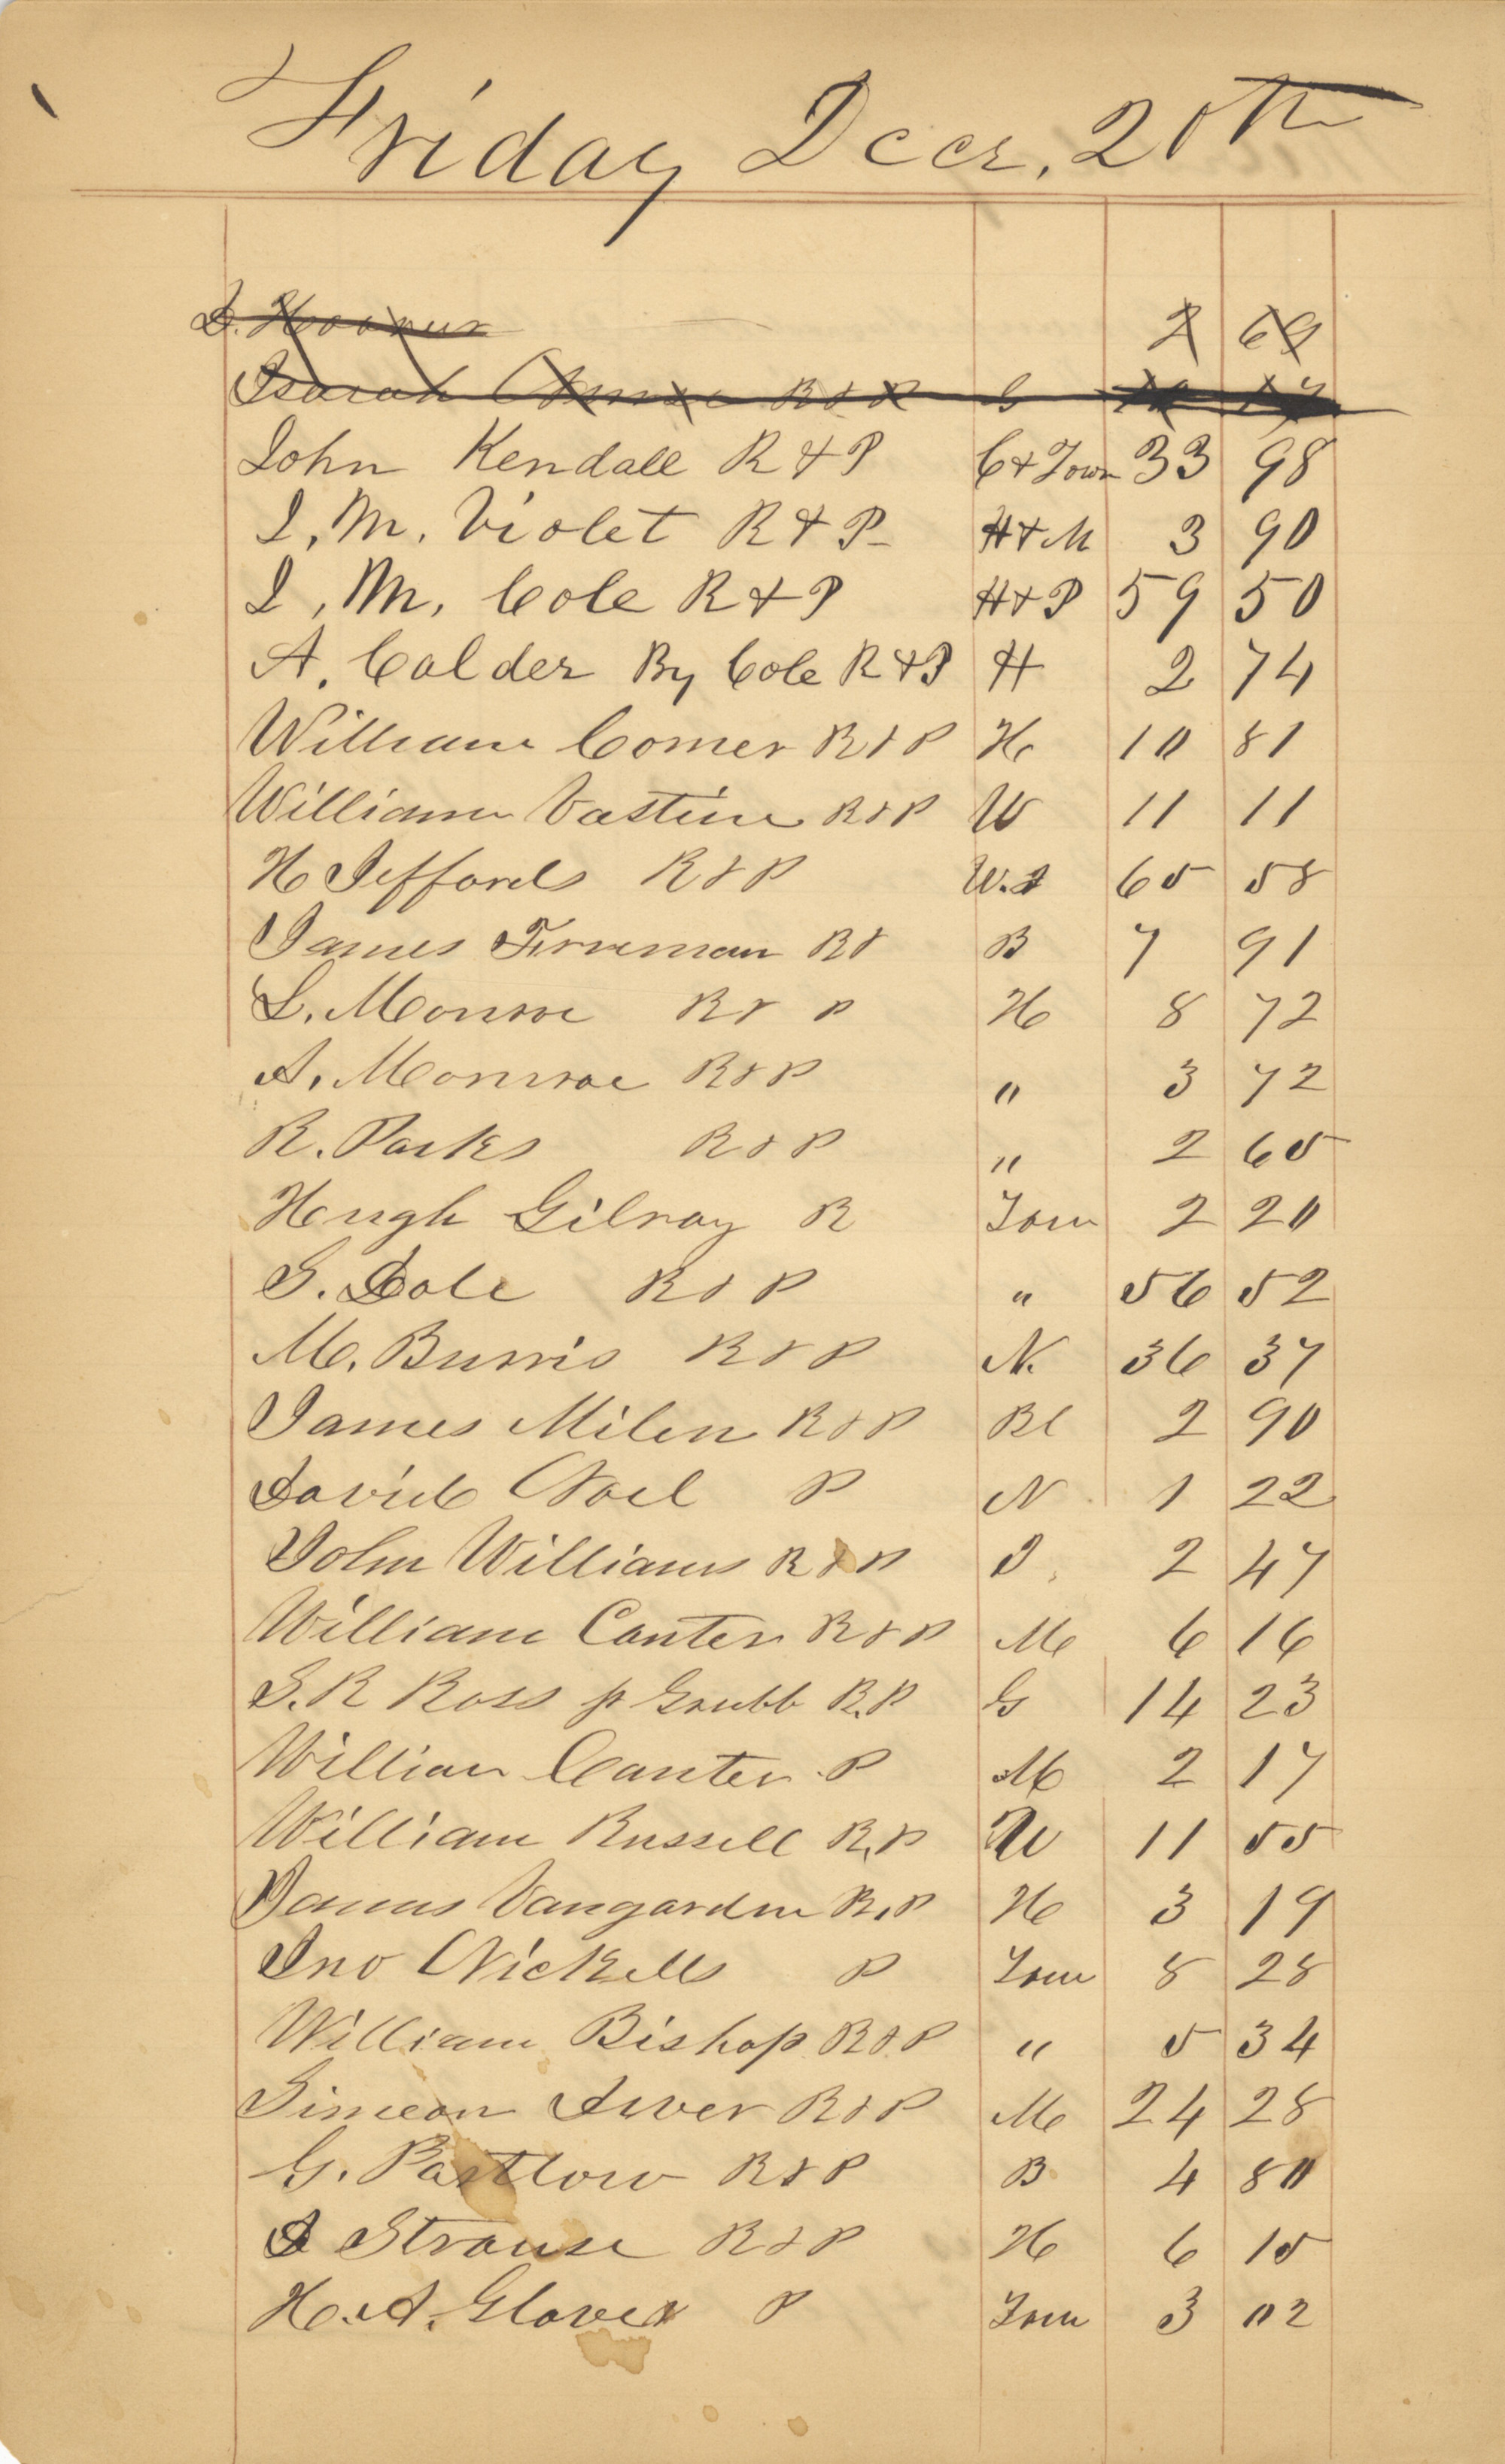 Friday Decr. 20th
Hoover 2 69
R & P G
John Kendall R & P C & Town 33 98
I. M. Violet R & P H & M 3 90
I. M. Cole R & P H & P 59 50
A. Calder By Cole R & P H 2 74
William Comer R & P H 10 81
William Vastine R & P W 11 11
H Jeffords R & P W. 65 58
James Freeman R & B 7 91
L. Monroe R & P H 8 72
A. Monroe R & P " 3 72
R. Parks R & P " 2 65
Hugh Gilray R Town 2 20
G. Dole R & P " 56 52
M. Burris R & P N. 36 37
James Milen R & P Bl 2 90
David Noel P N 1 22
John Williams R & P J 2 47
William Canter R & P M 6 16
S. R Ross p Grubb R. P G 14 23
William Canter P M 2 17
William Russell R. P W 11 55
James Vangarden R. P H 3 19
Jno Nickells P Town 8 28
William Bishop R & P " 5 34
Simeon R & P M 24 28
G. Partlow R & P B 4 80
Strause R & P H 6 15
H. A. Glover P Town 3 02